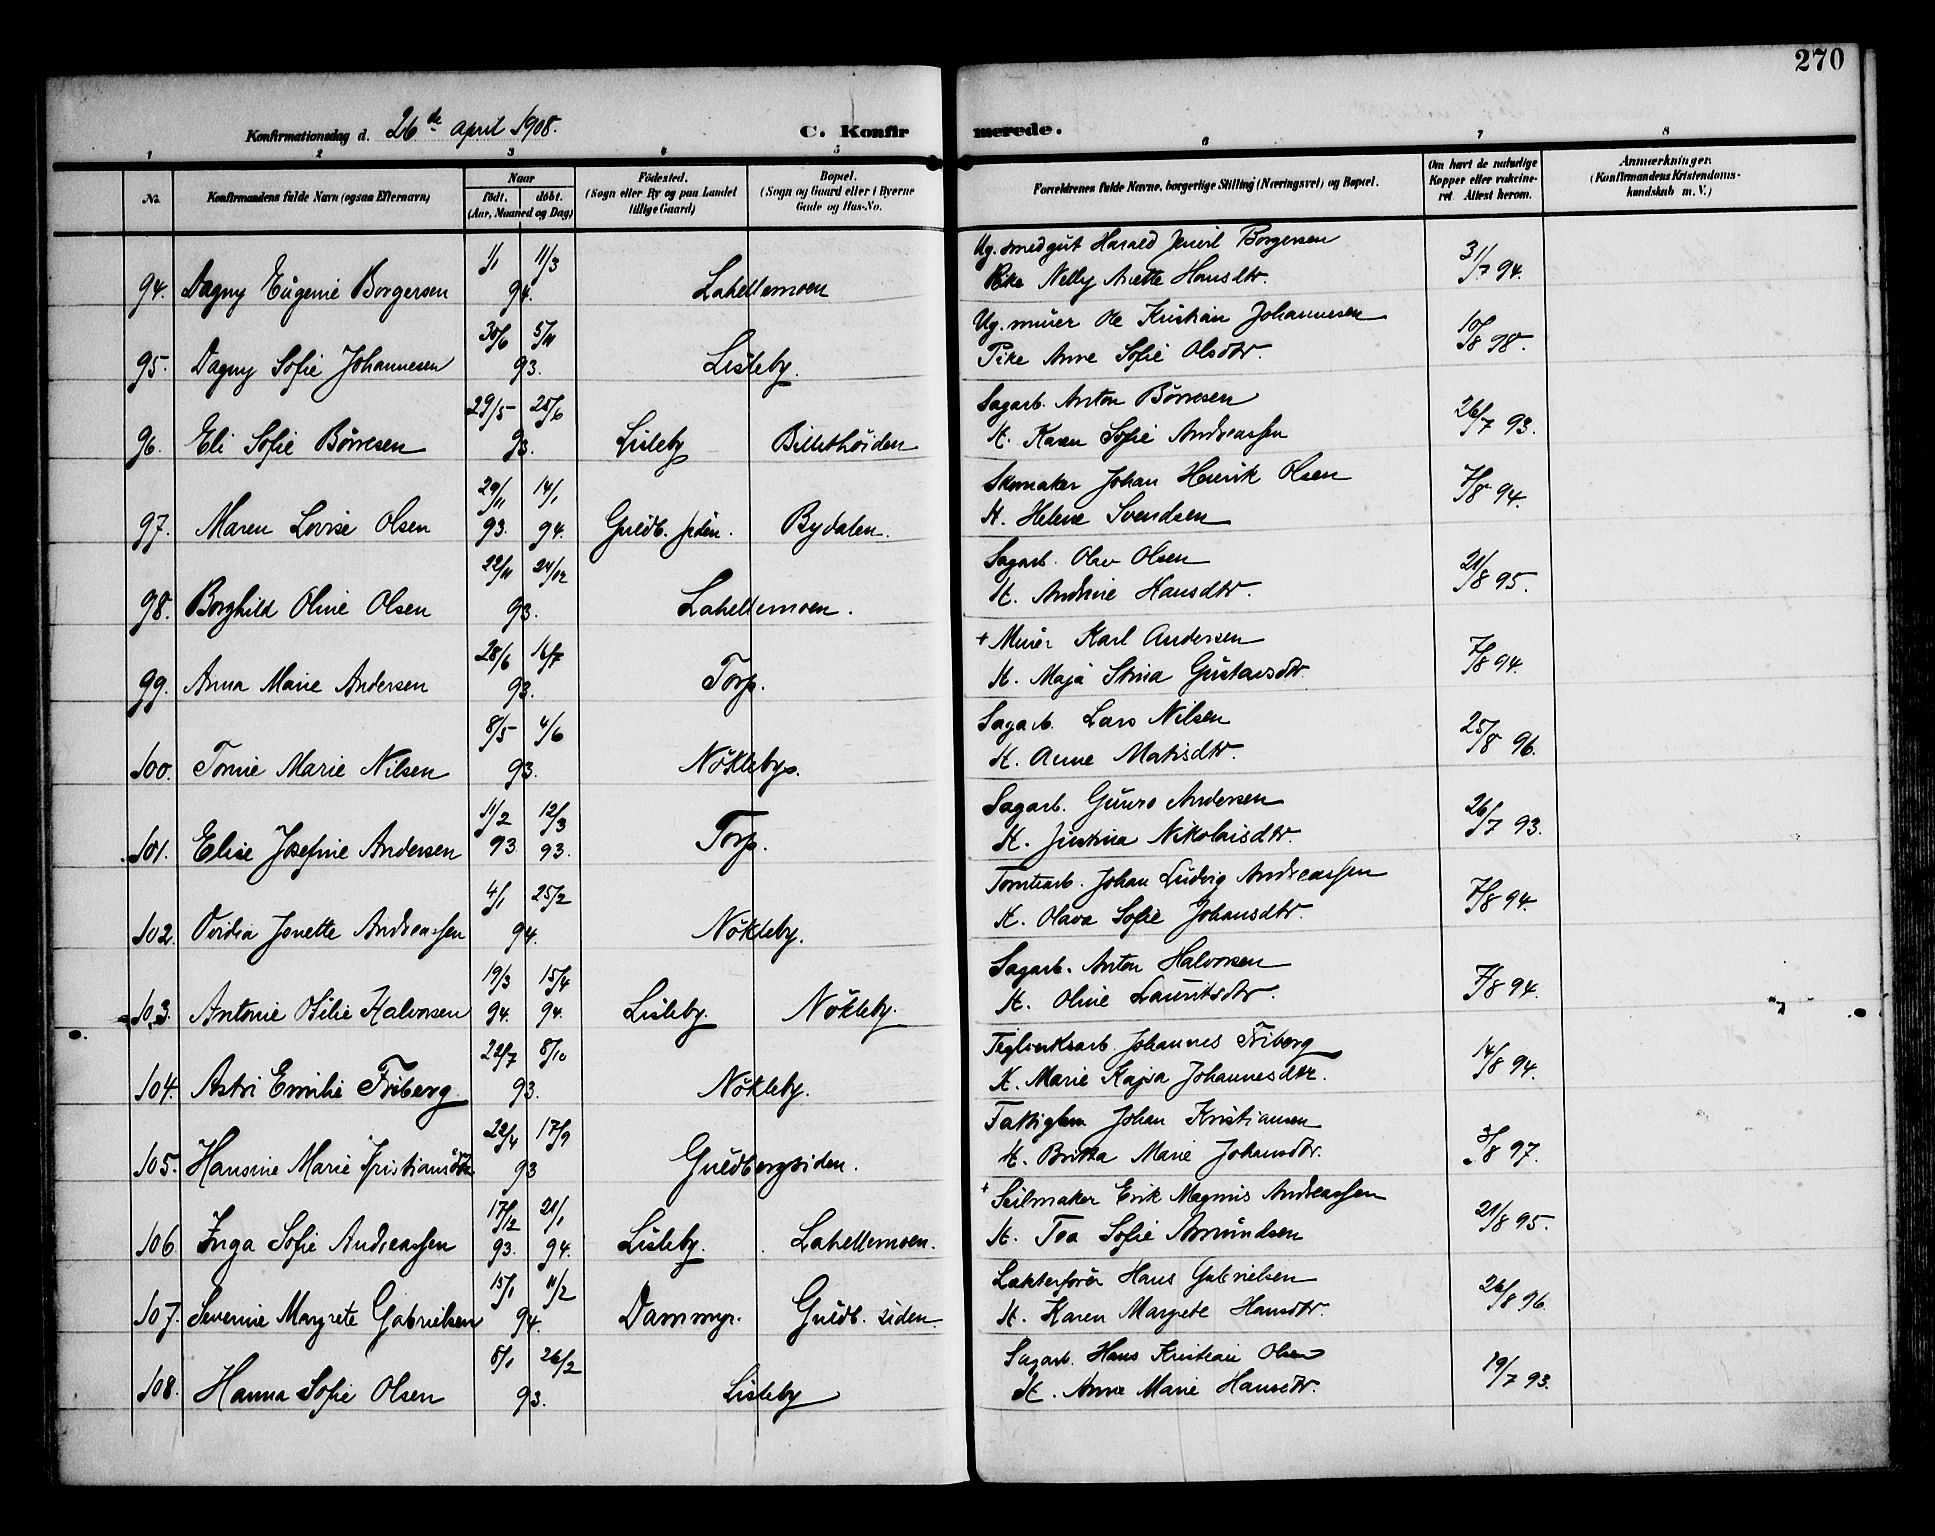 270
Konfirmationsdag d. 26de april 1908.
C. Konfirmerede.
1 2 3 4 5 6 7 8
No. Konfirmandens fulde Navn (ogsaa Efternavn) Naar født. døbt. (Aar, Maaned og Dag) Fødested. (Sogn eller By og paa Landet tillige Gaard) Bopæl. (Sogn og Gaard eller i Byerne Gade og Hus-No. Forældrenes fulde Navne, borgerlige Stilling (Næringsvei) og Bopæl. Om havt de naturlige Kopper eller vakcineret. Attest herom. Anmærkninger. (Konfirmandens Kristendomskundskab m. V.)
1/1 11/3 Ug. smedgut Harald Borgersen 31/7 94.
94. Dagny Eugenie Borgersen 94. Lahellemoen Pike Nelly Hansdtr.
30/6 5/11 Ug. murer Ole Kristian Johannesen 10/8 98.
95. Dagny Sofie Johannesen 93. Lisleby. Pike Anne Sofie Olsdtr.
29/5 25/6 Sagarb. Anton Børresen 26/7 93.
96. Eli Sofie Børresen 93. Lisleby H. Karen Sofie Andreassen
29/11 14/1 Skomaker Johan Henrik Olsen 7/8 94.
97. Maren Lovise Olsen 93. 94. Guldb. siden. Bydalen. H. Helene Svendsen
22/11 24/12 Sagarb. Olav Olsen 21/8 95.
98. Borghild Oline Olsen 93. Lahellemoen. H. Andrine Hansdtr.
28/6 16/7 + Murer Karl Andersen 7/8 94.
99. Anna Marie Andersen 93. Torp. H. Maja Stina Gustavsdtr.
8/5 4/6 Sagarb. Lars Nilsen 25/8 96.
100. Tomie Marie Nilsen 93. Nökleby. H. Anne Matisdtr.
11/2 12/3 Sagarb. Andersen 26/7 93.
101. Elise Josefine Andersen 93 93. Torp. H. Justina Nikolaisdtr.
4/1 25/2 Tomtearb. Johan Ludvig Andreassen 7/8 94.
102. Ovidia Jonette Andreassen 94. Nökleby. H. Olava Sofie Johansdtr.
19/3 15/4 Sagarb. Anton Halvorsen 7/8 94.
103. Antonie Otilie Halvorsen 94. 94. Lisleby. Nökleby. H. Oline Lauritsdtr.
22/7 8/10 Teglverksarb. Johannes Friberg 14/8 94.
104. Astri Emilie Friberg 93. Nökleby. H. Marie Kajsa Johannesdtr.
22/4 17/9 Fattiglem Johan Kristiansen 3/8 97.
105. Hansine Marie Kristiansdtr 93 Guldbergsiden. H. Britta Marie Johansdtr.
17/12 21/1 + Seilmaker Erik Magnus Andreassen 21/8 95.
106 Inga Sofie Andreassen 93. 94. Lisleby. Lahellemoen. H. Tea Sofie Amundsen
15/1 11/2 Lekterfører Hans Gabrielsen 26/8 96.
107. Severine Margrete Gabrielsen 94. Dammyr. Guldb. siden. H. Karen Margrete Hansdtr.
8/1 26/2 Sagarb. Hans Kristian Olsen 19/7 93.
108. Hanna Sofie Olsen 93. Lisleby H. Anne Marie Hansdtr.